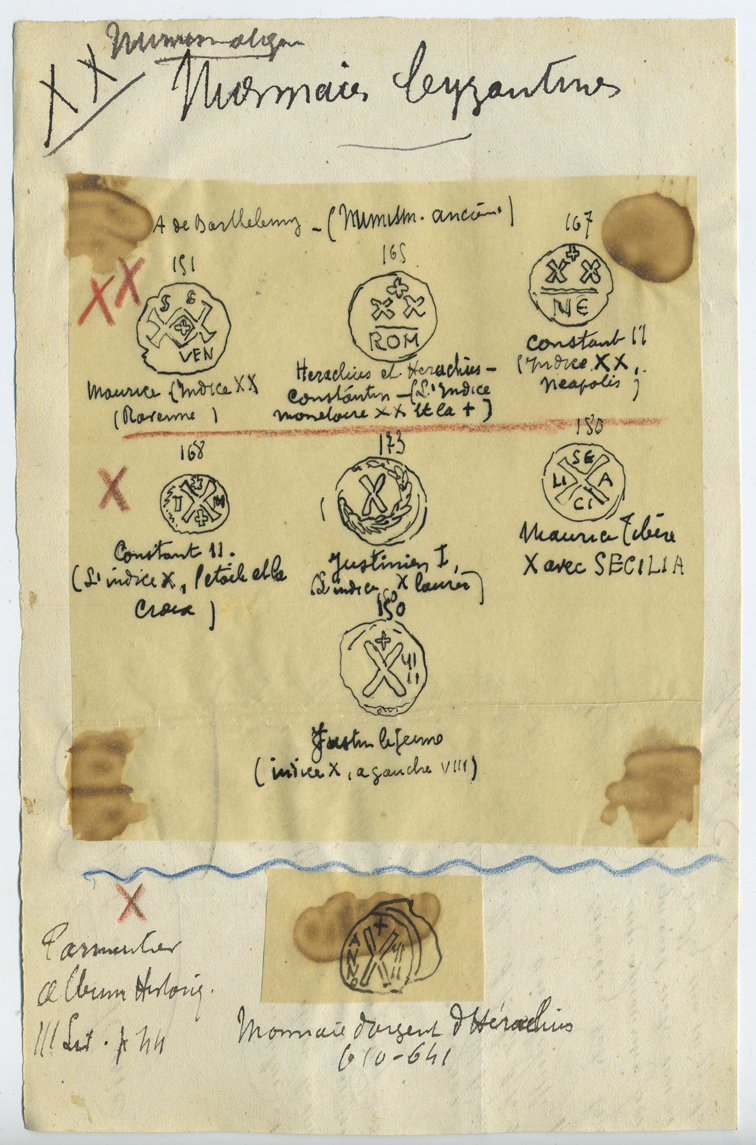 XX
Numismatique
Monnaies byzantines
A de Barthelemy - (Numism. ancien)
XX
151
S S
VEN
Maurice (Indice XX
(Ravenne)
165
XX
ROM
Heraclius et Heraclius-
Constantin - (L'Indice
monetaire XX et la +)
167
XX
NE
Constant II
(Indice XX,
Neapolis)
X
168
X
Constant II.
(L'indice X, l'etoile et la
Croix)
173
X
Justinien I,
(L'indice X lauré)
180
SE
LI A
CI
Maurice Tibère
X avec SECILIA
150
X
Justin le jeune
(indice X, a gauche VIII)
X
Parmentier
album Historiq.
III p 44
ANNO
X
Monnaie d'argent d'Héraclius
610-641